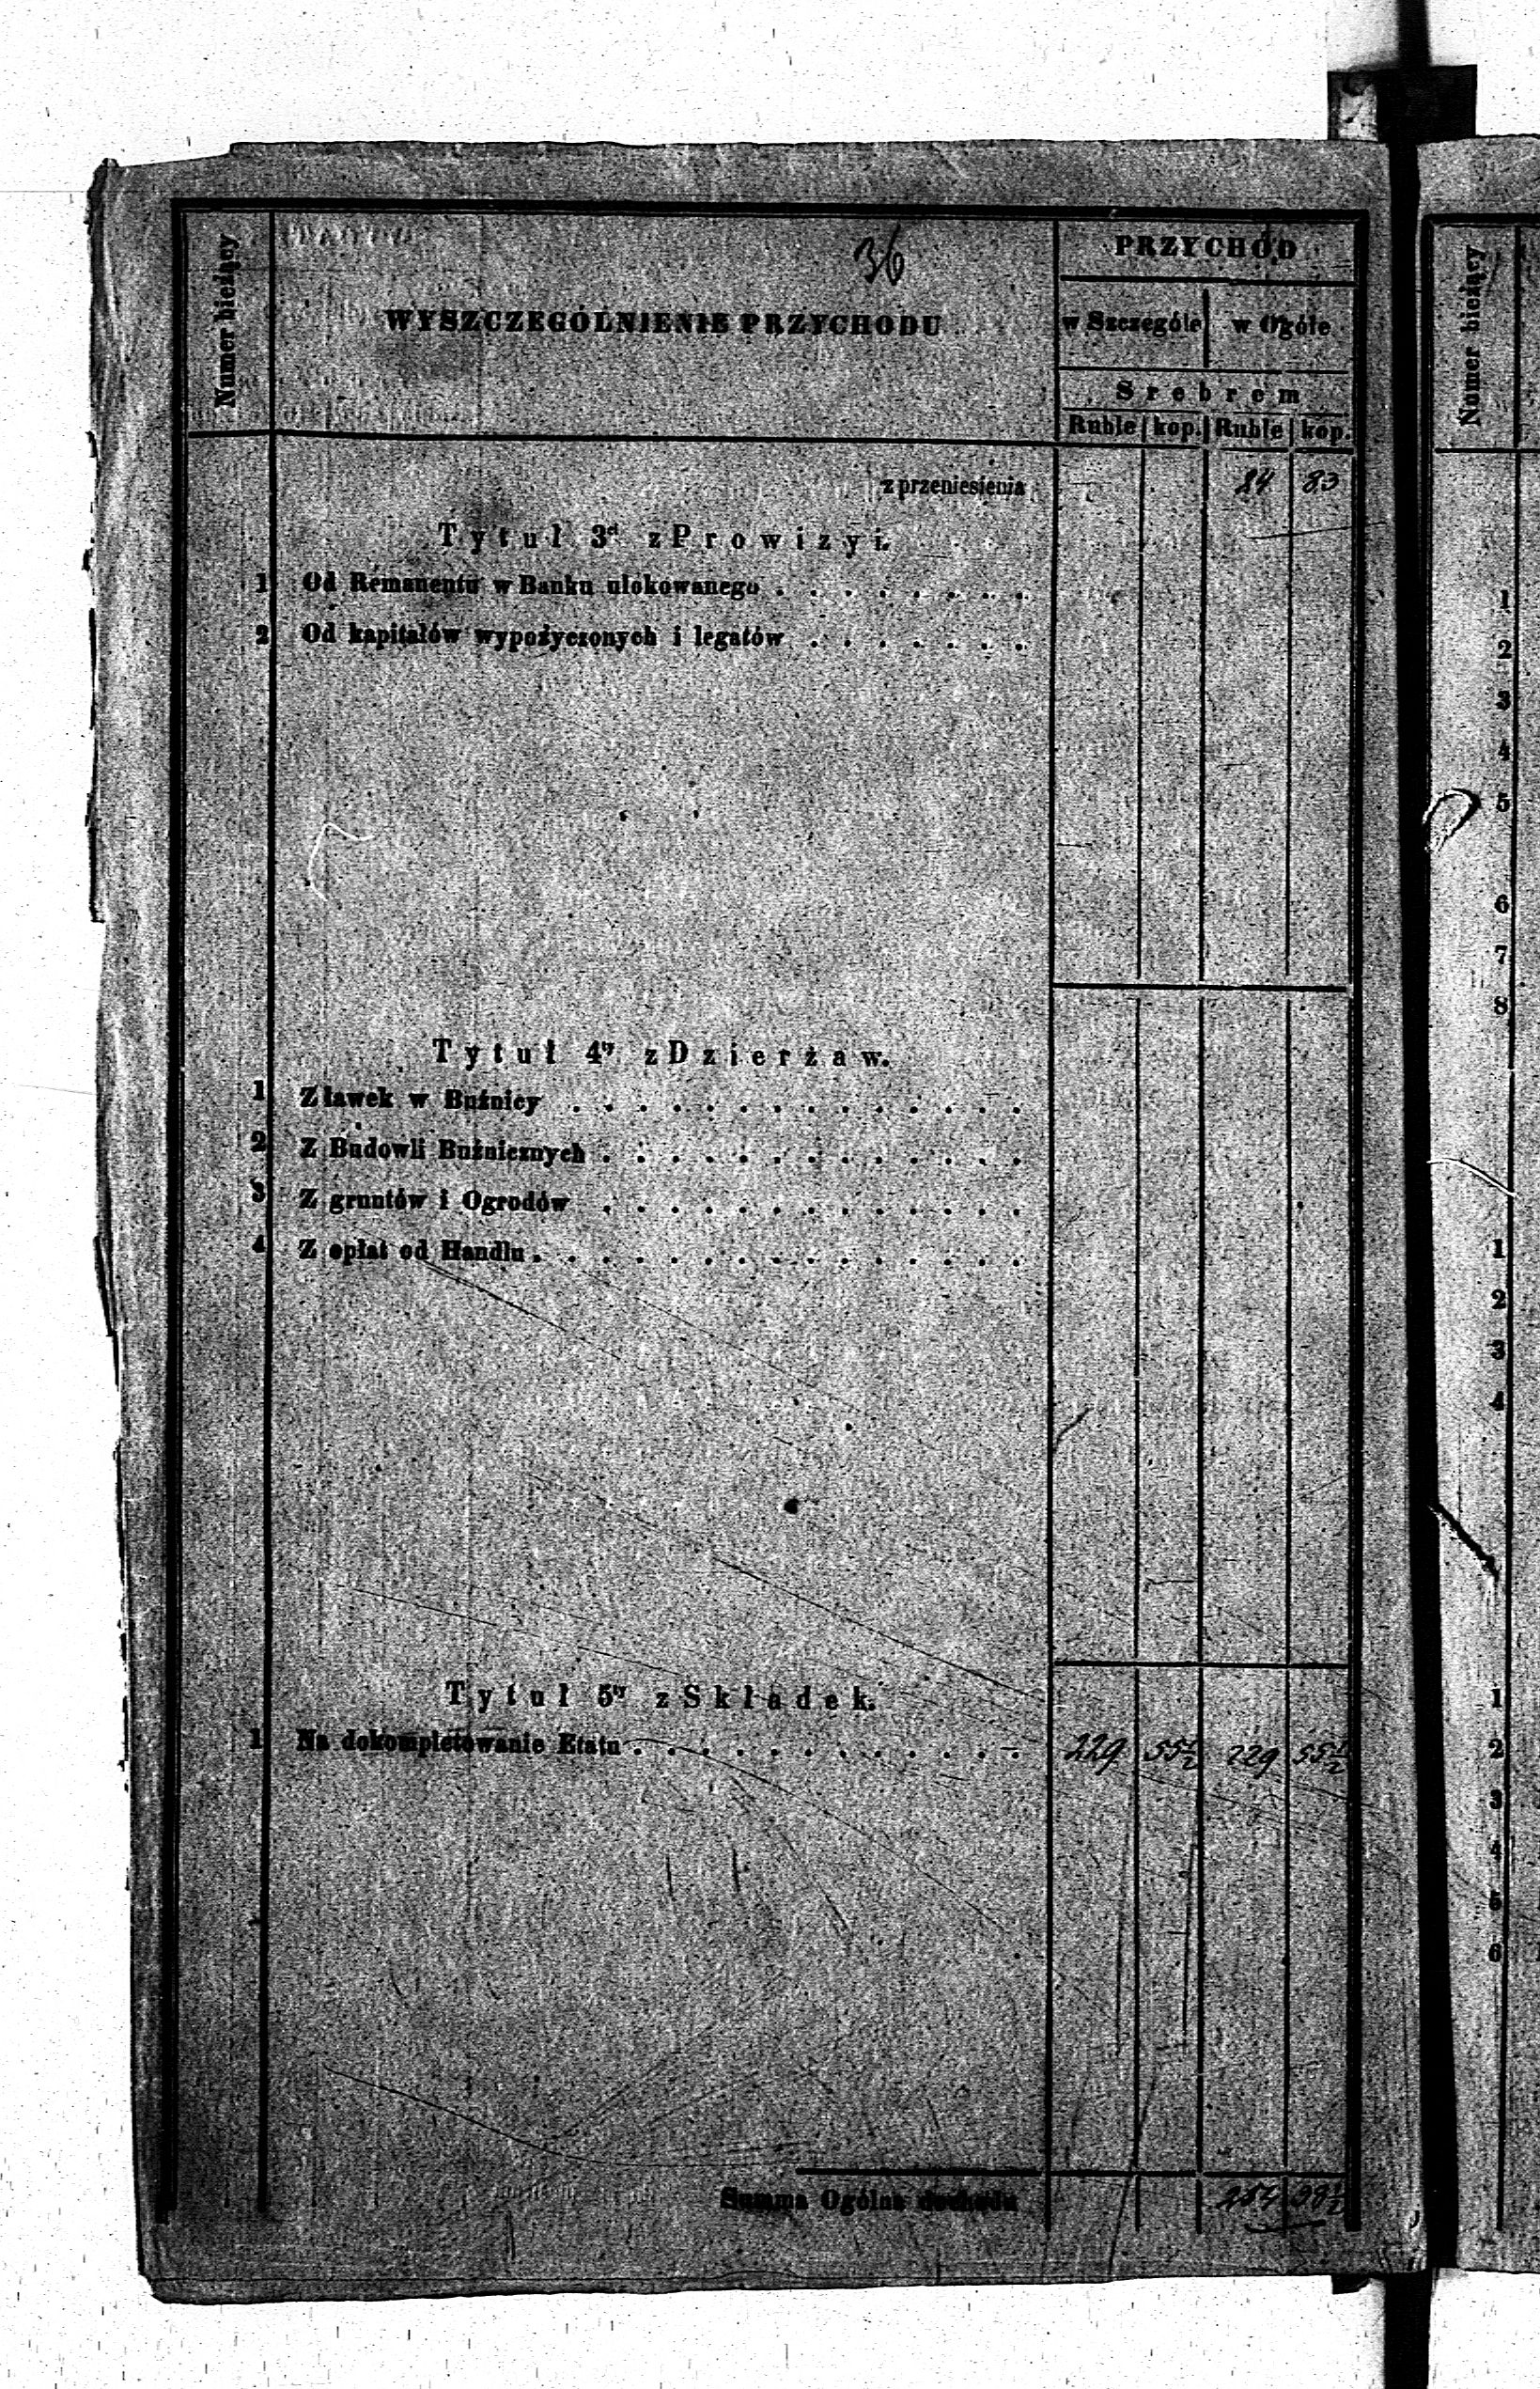 36
Numer bieżący
WYSZCZEGÓLNIENIE PRZYCHODU
PRZYCHÓD
w Szczególe w Ogóle
Srebrem
Ruble kop. Ruble kop.
z przeniesienia 84 83
Tytuł 3ci z Prowizyi.
1 Od Remanentu w Banku ulokowanego . . . . . . . .
2 Od kapitałów wypożyczonych i legatów . . . . . . .
Tytuł 4ty z Dzierżaw.
1 Z ławek w Buźnicy . . . . . . . . . . . . . .
2 Z Budowli Buźnicznych . . . . . . . . . . . . .
3 Z gruntów i Ogrodów . . . . . . . . . . . . .
4 Z opłat od Handlu . . . . . . . . . . . . . . .
Tytuł 5ty z Składek.
1 Na dokompletowanie Etatu . . . . . . . . . . . . 229 55½ 229 55½
Summa Ogólna dochodu
Numer bieżący
1
2
3
4
5
6
7
8
1
2
3
4
1
2
3
4
5
6